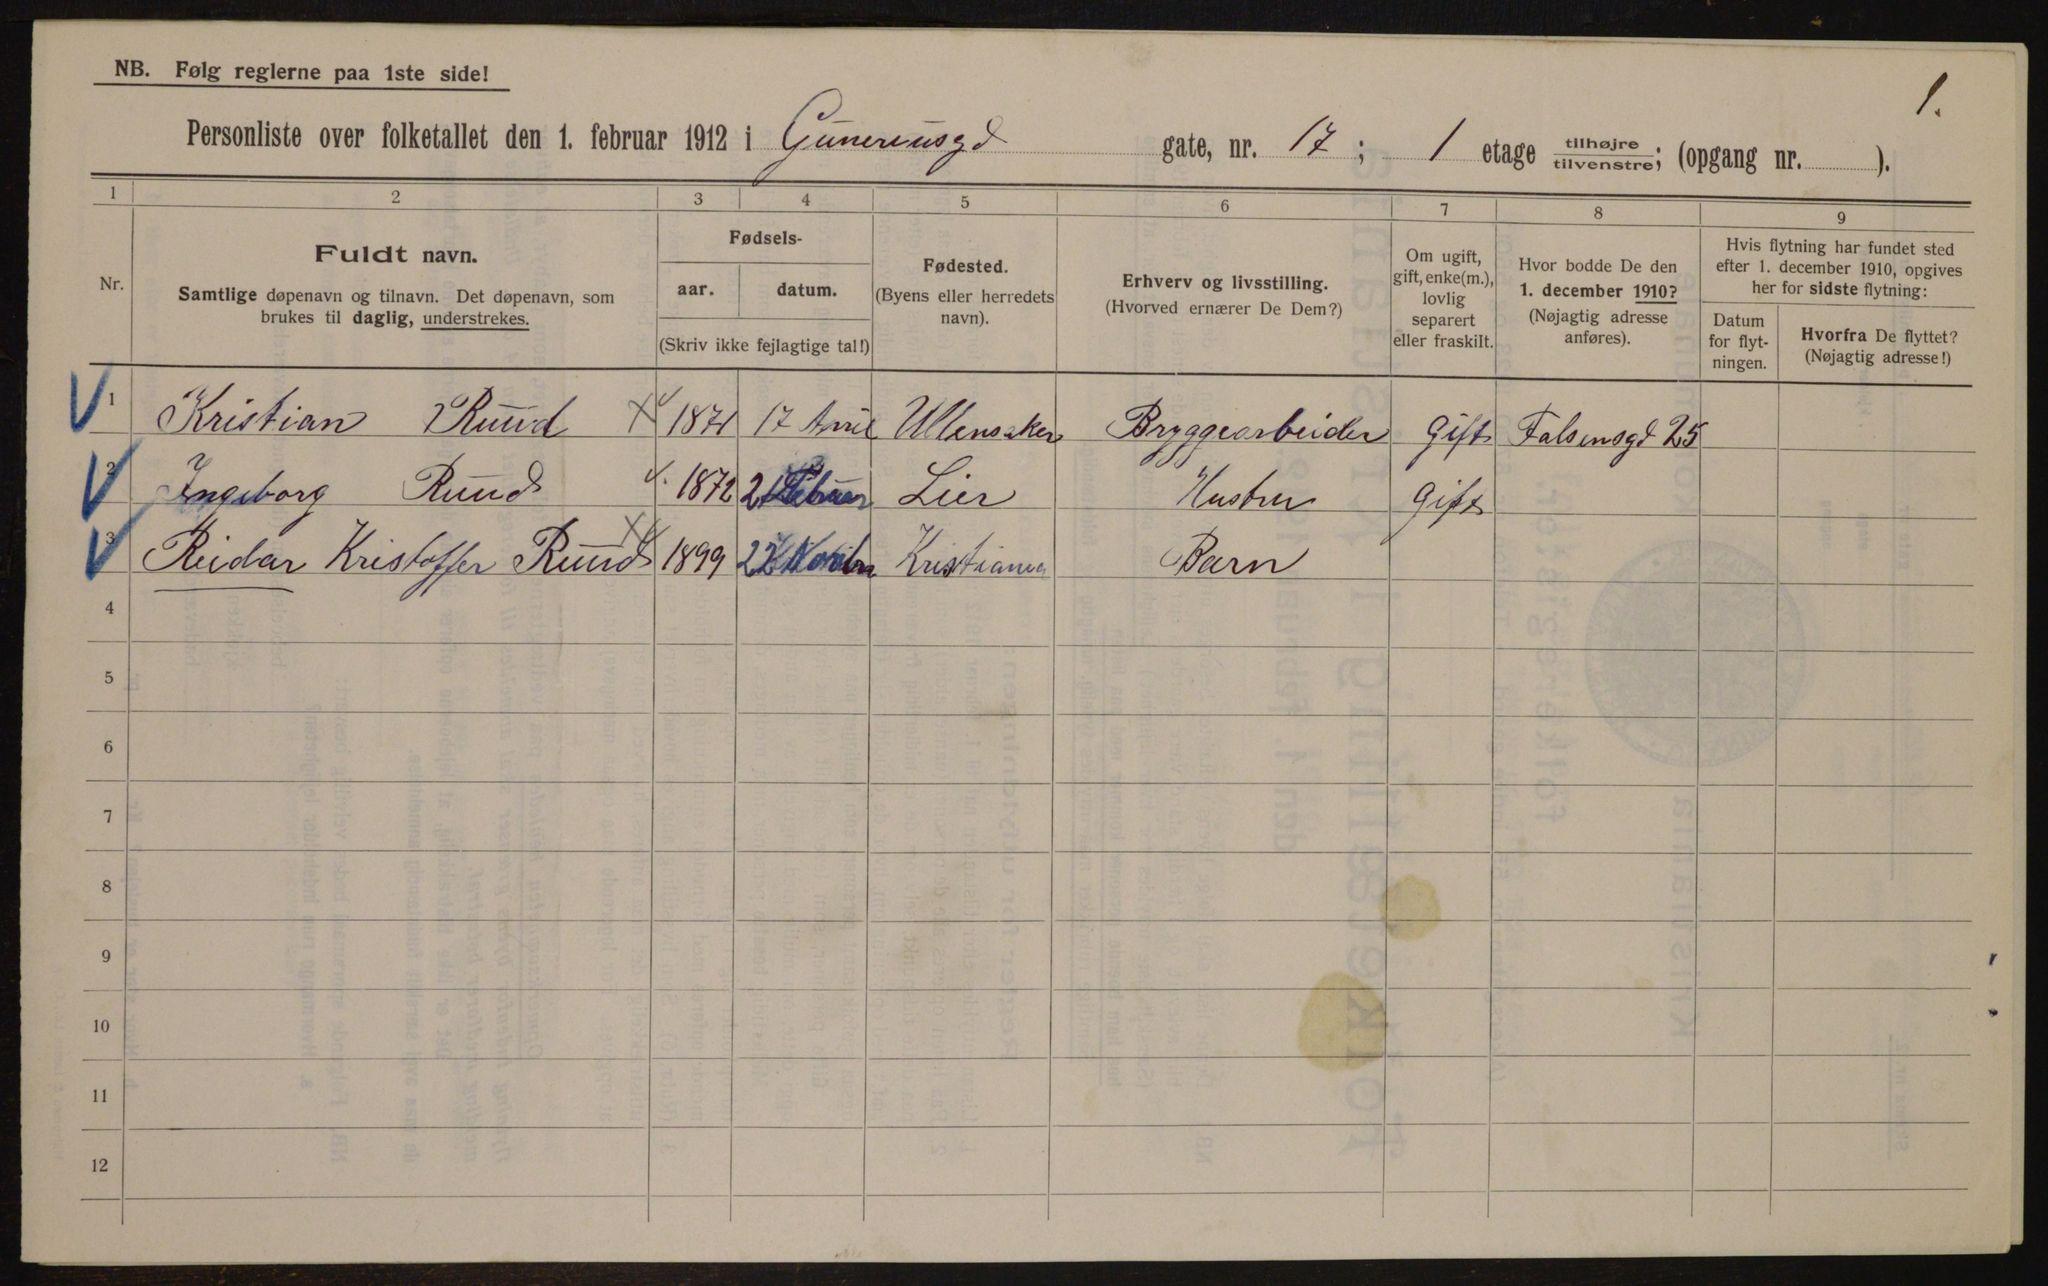 NB. Følg reglerne paa 1ste side!
1.
Personliste over folketallet den 1. februar 1912 i Gunerıusgd gate, nr. 17; 1 etage tilhøjre/tilvenstre; (opgang nr. ).
1 2 3 4 5 6 7 8 9
Nr.
Fuldt navn.
Samtlige døpenavn og tilnavn. Det døpenavn, som
brukes til daglig, understrekes.
Fødsels-
aar. datum.
(Skriv ikke fejlagtige tal!)
Fødested.
(Byens eller herredets
navn).
Erhverv og livsstilling.
(Hvorved ernærer De Dem?)
Om ugift,
gift, enke(m.),
lovlig
separert
eller fraskilt.
Hvor bodde De den
1. december 1910?
(Nøjagtig adresse
anføres).
Hvis flytning har fundet sted
efter 1. december 1910, opgives
her for sidste flytning:
Datum
for flyt-
ningen.
Hvorfra De flyttet?
(Nøjagtig adresse!)
1 Kristian Ruud 1871 17 April Ullensaker Bryggearbeider Gift Falsensgd 25
2 Ingeborg Ruud 1872 21 Februar Lier Hustru Gift
3 Reidar Kristoffer Ruud 1899 22 Kristiania Barn
4
5
6
7
8
9
10
11
12